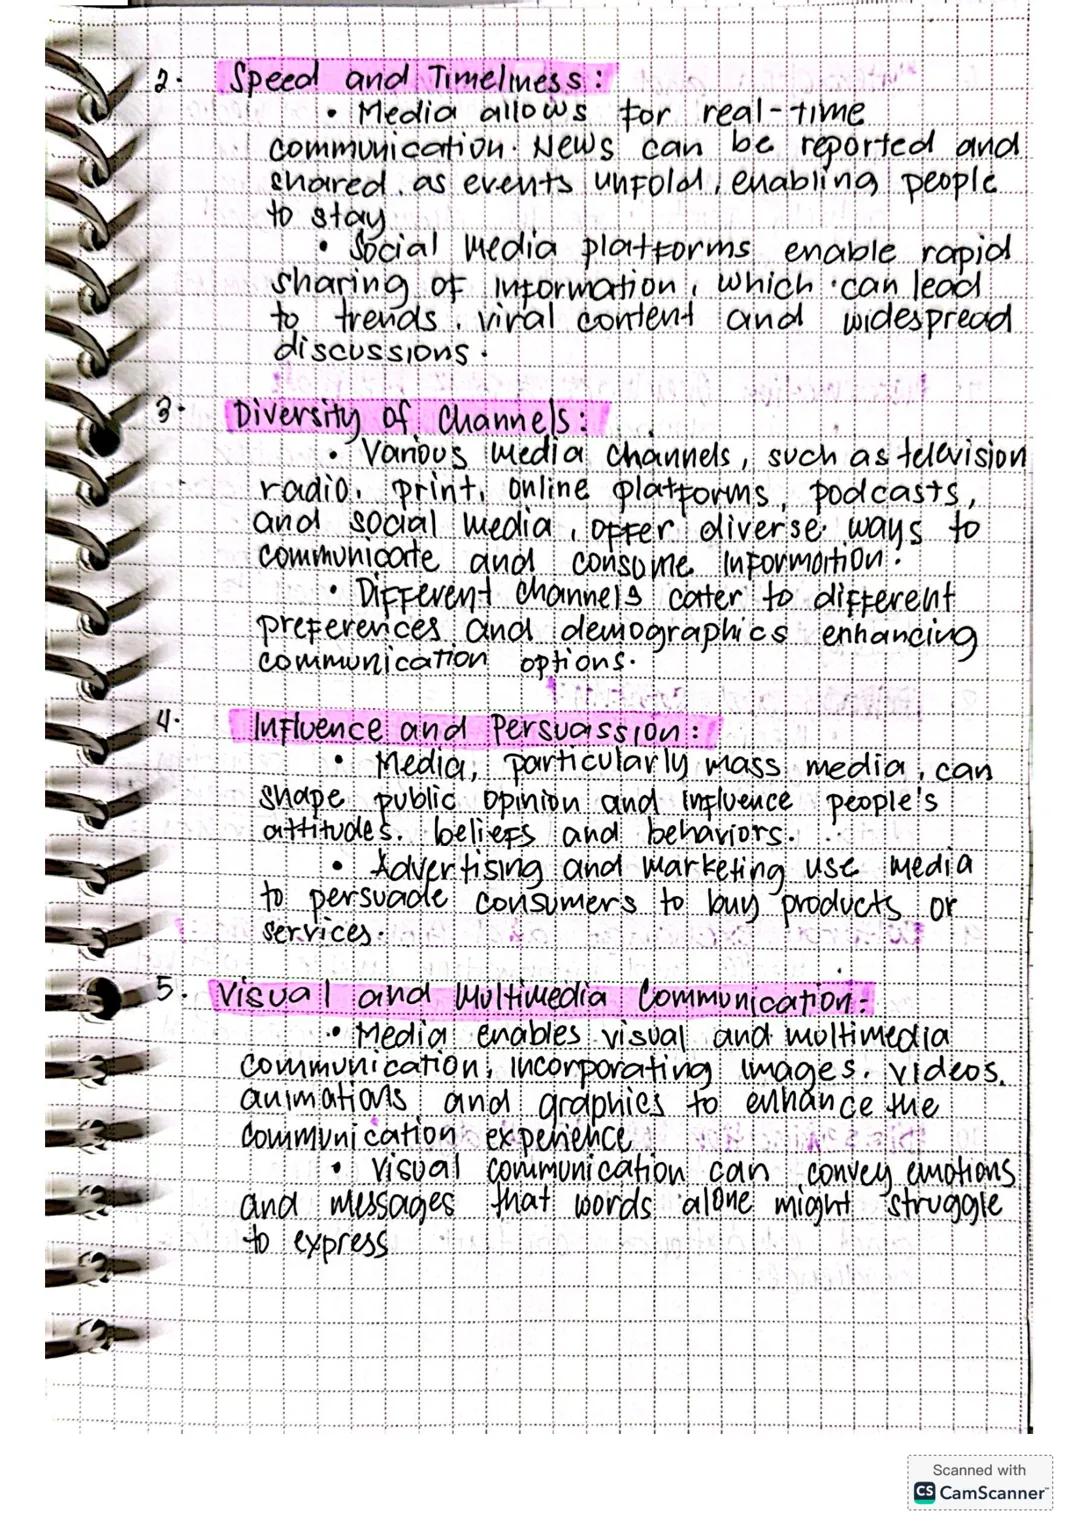 2. Speed and Timeliness:
• Media allows for real-time
communication. News can be reported and
shared as events unfold, enabling people
to stay
• Social media platforms enable rapid
sharing of information, which can lead
to trends, viral content and widespread
discussions.
3. Diversity of Channels:
• Various media channels, such as television
radio, print, online platforms, podcasts,
and social media, offer diverse ways to
communicate and consume information.
• Different channels cater to different
preferences and demographics enhancing
communication options.
4. Influence and Persuassion:
• Media, particularly mass media, can
shape public opinion and influence people's
attitudes, beliefs and behaviors.
• Advertising and marketing use media
to persuade consumers to buy products or
services.
5. Visual and Multimedia Communication:
• Media enables visual and multimedia
communication, incorporating images, videos,
animations and graphics to enhance the
communication experience
• Visual communication can convey emotions
and messages that words alone might struggle
to express
Scanned with
CS CamScanner